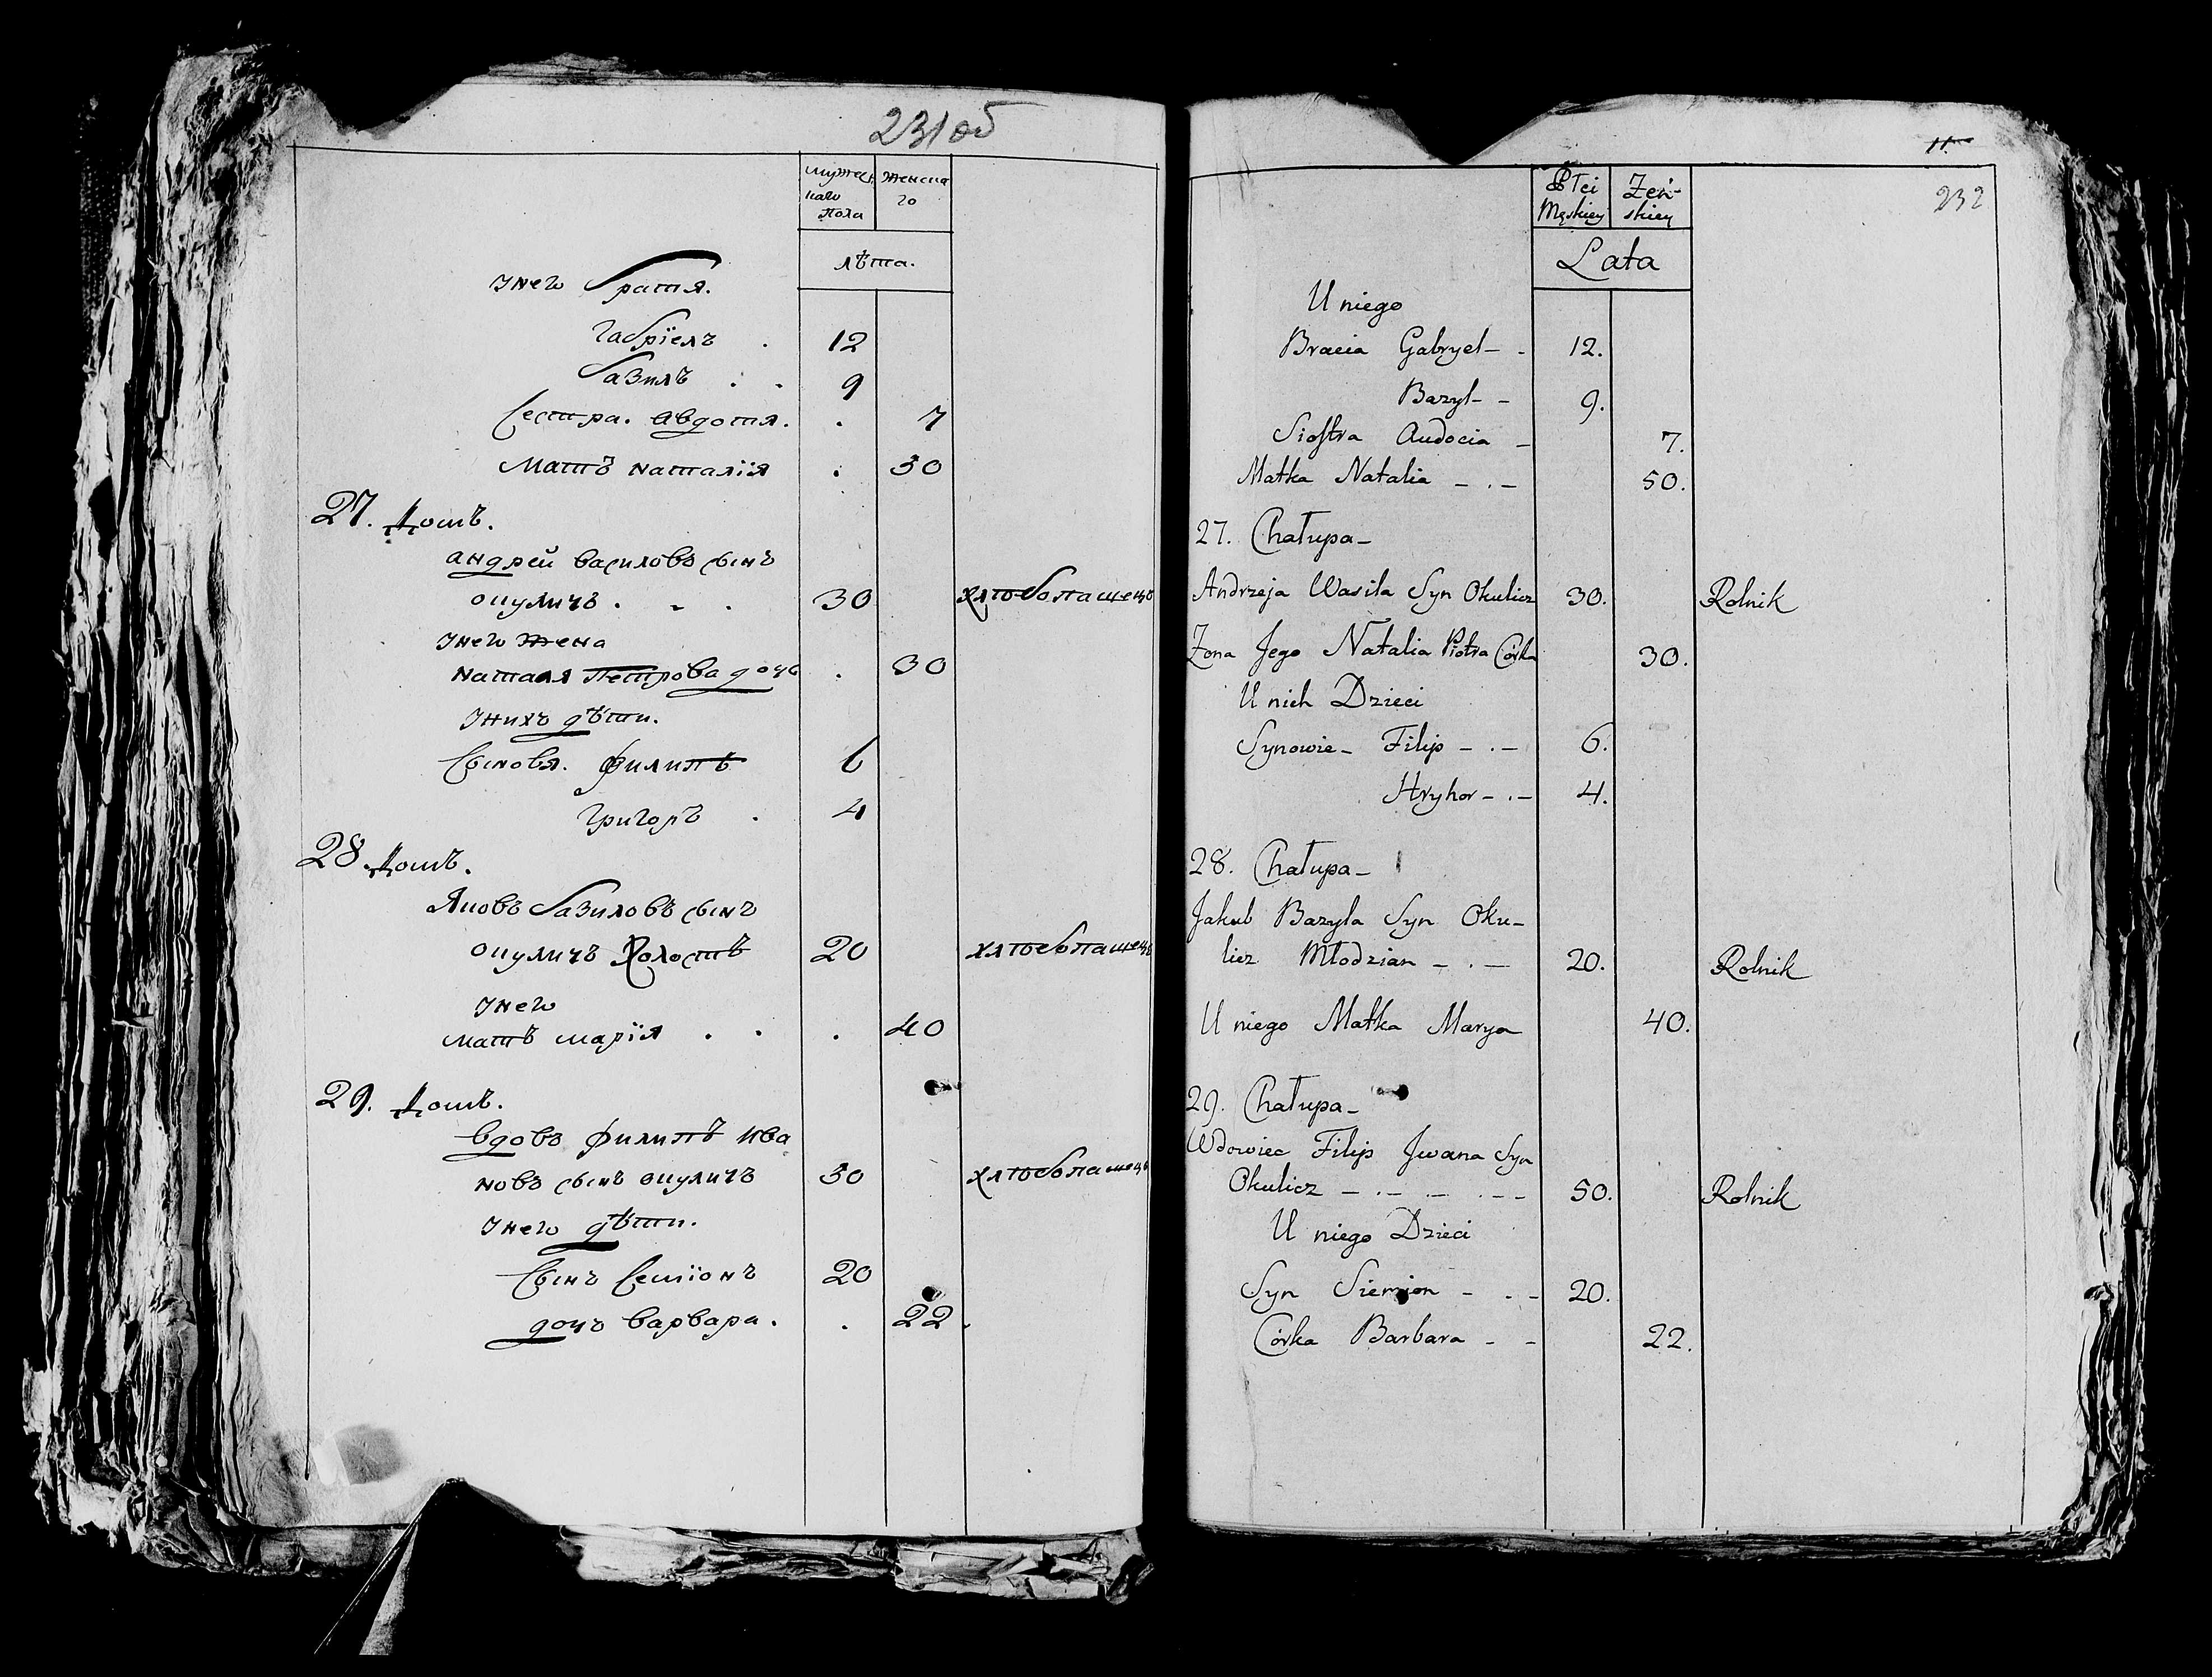 231 об
мужес
каго
пола
женска
го
лѣта.
Унего братя.
габріелъ . 12
базилъ . . 9
Сестра. авдотя. . 7
Матъ наталія . 30
27. Домъ.
андрей василовъ сынъ
окуличъ . . . 30 хлѣбопашецъ
Унего жена
наталя Петрова дочь . 30
Унихъ дѣти.
Сыновя. филипъ 6
григоръ . 4
28. Домъ.
Яковъ базиловъ сынъ
окуличъ Холостъ 20 хлѣбопашецъ
Унего
матъ марія . . . 40
29. Домъ.
вдовъ филипъ ива
новъ сынъ окуличъ 50 хлѣбопашецъ
Унего дѣти.
Сынъ Семіонъ 20
дочъ варвара. . 22.
11.
232
Płci
Męskiey
Żeń-
skiey
Lata
U niego
Bracia Gabryel - . 12.
Bazyl - - 9.
Siostra Audocia - 7.
Matka Natalia - . - 50.
27. Chałupa -
Andrzeja Wasila Syn Okulicz 30. Rolnik
Żona Jego Natalia Piotra Córka 30.
U nich Dzieci
Synowie - Filip - . - 6.
Hryhor - . - 4.
28. Chałupa -
Jakub Bazyla Syn Oku-
licz Młodzian - . - 20. Rolnik
U niego Matka Marya 40.
29. Chałupa -
Wdowiec Filip Jwana Syn
Okulicz - . - . - . - - 50. Rolnik
U niego Dzieci
Syn Siemion - . - 20.
Córka Barbara - - 22.